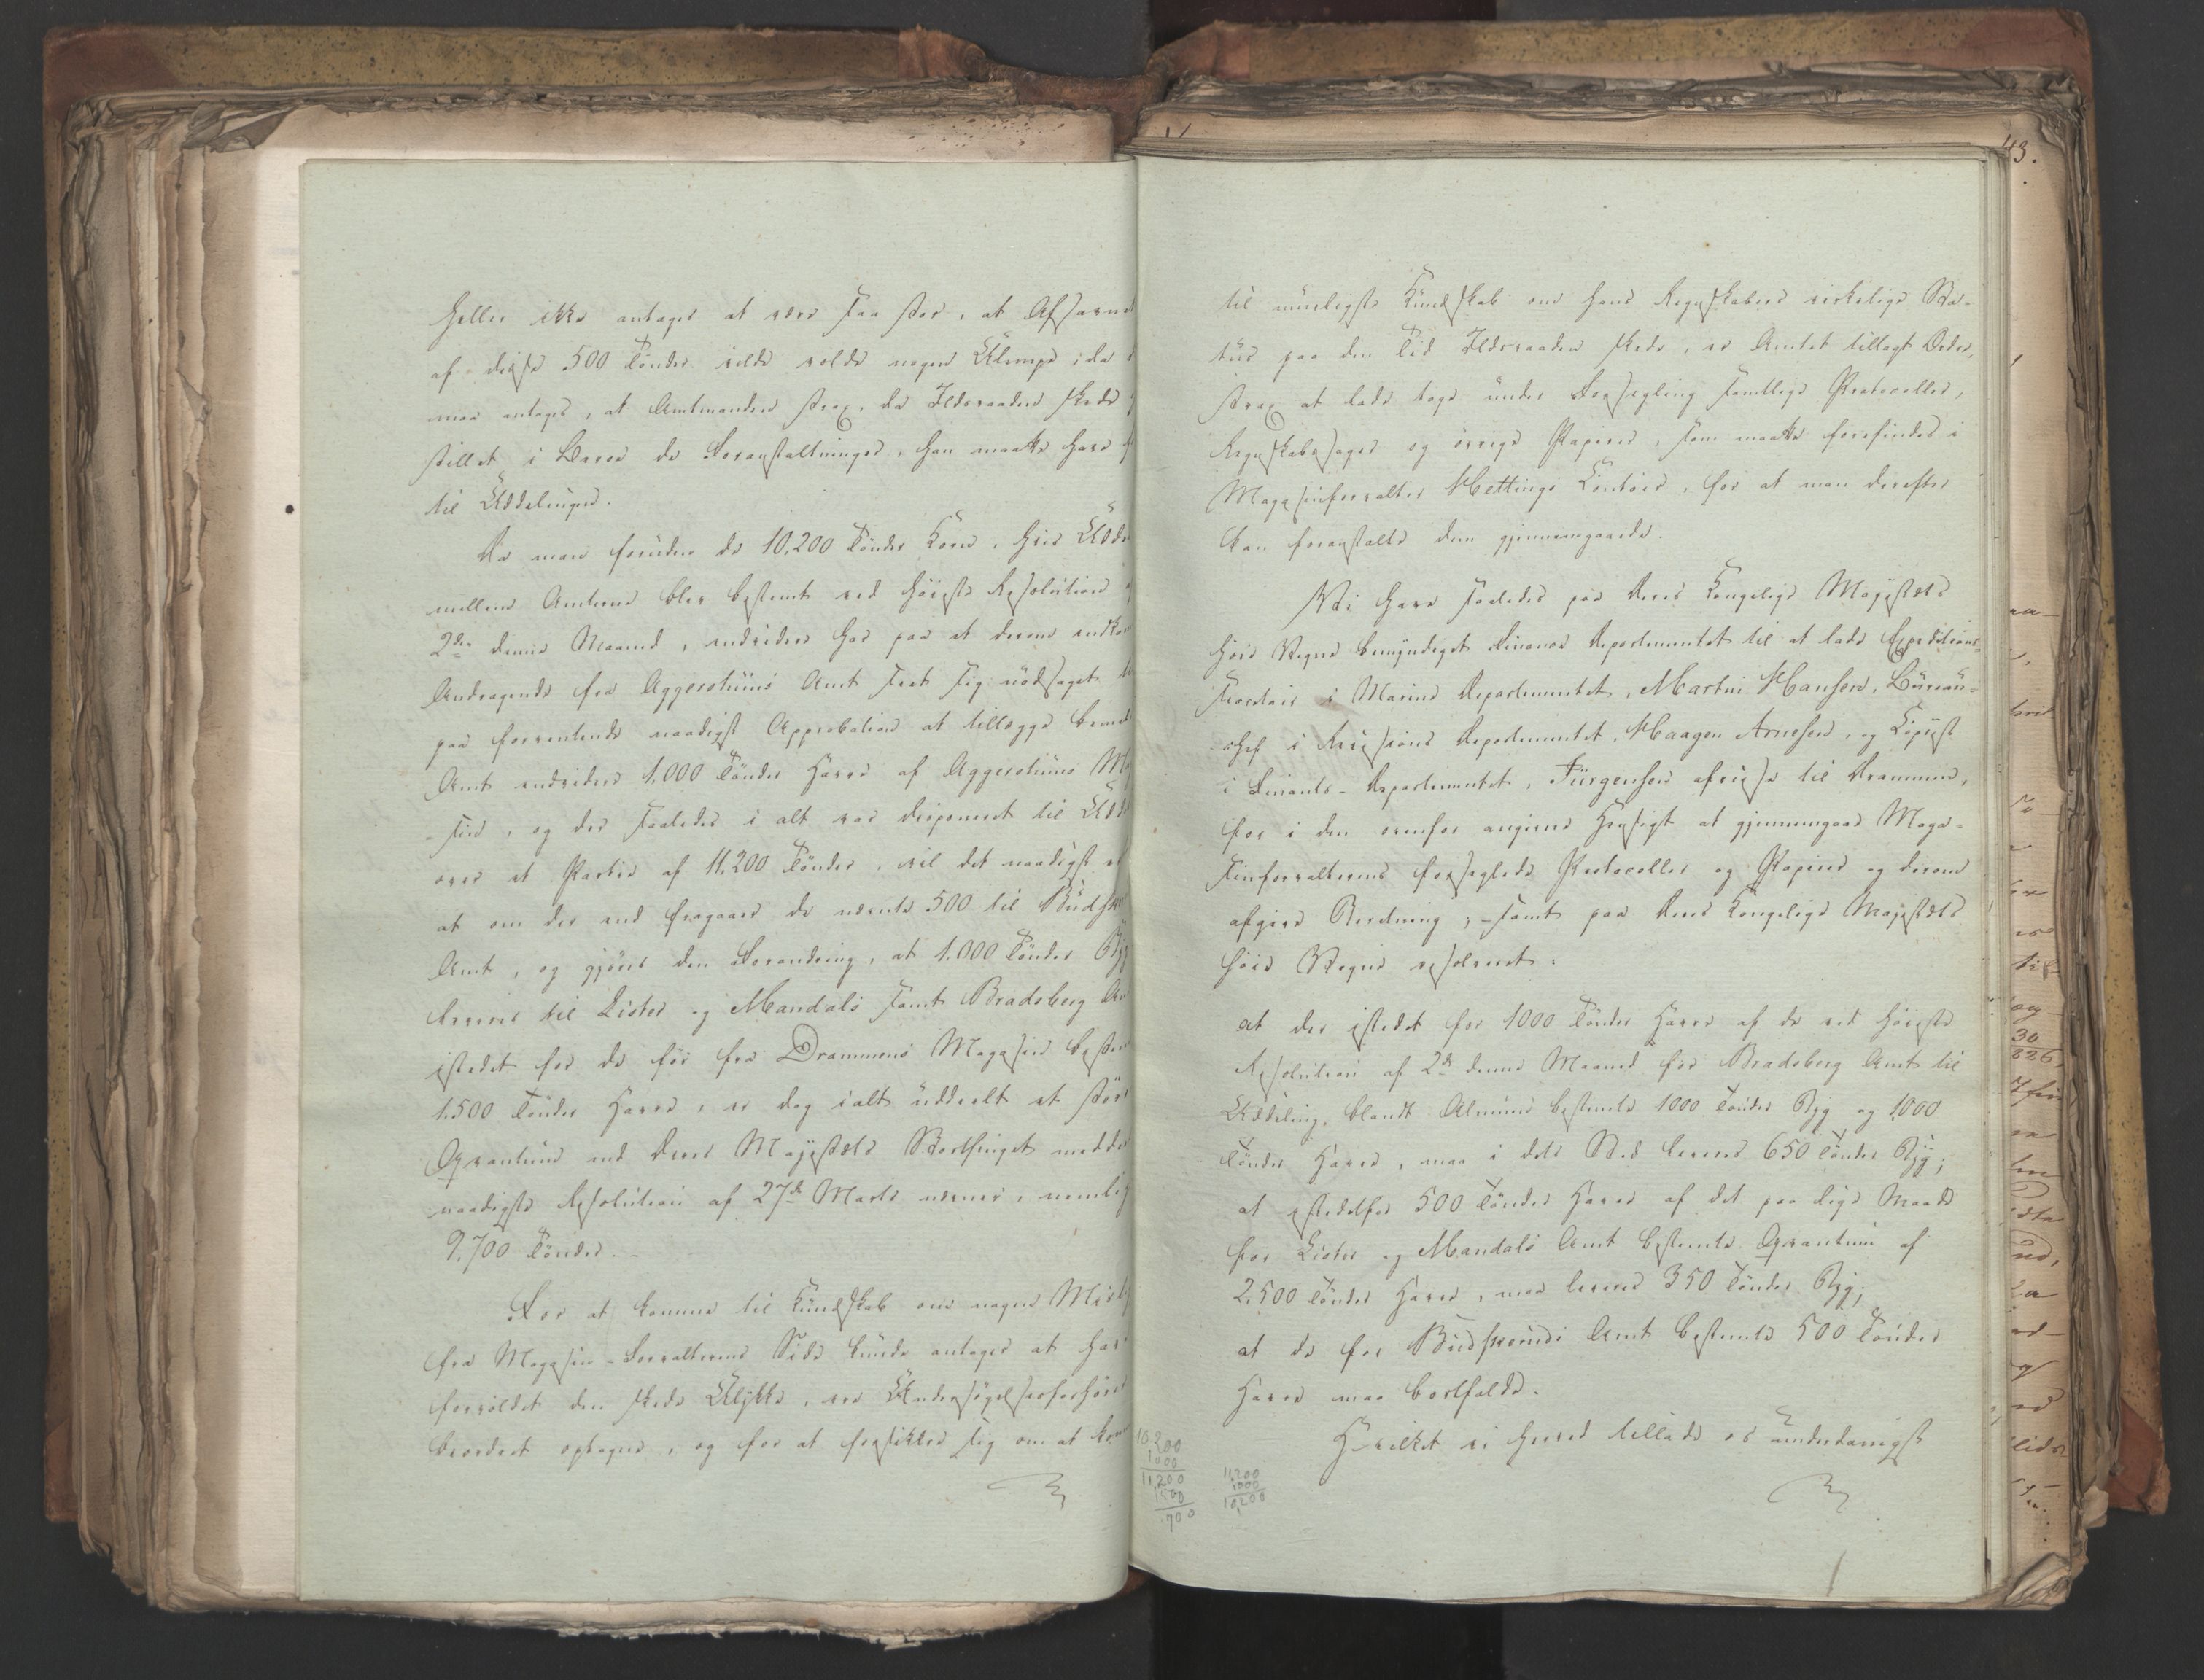 heller ikke antages at være saa stor, at Afsavnet
af disse 500 Tønder vilde volde nogen Ulempe, da
maa antages, at Amtmanden strax, da Ildsvaaden skede
stillet i Bero de Foranstaltninger, han maatte have
til Uddelingen.
Da man foruden de 10,200 Tønder Korn, hvis Udde
mellem Amterne blev bestemt ved høieste Resolution
2den denne Maaned, endvidere har paa et derom indkom
Andragende fra Aggershuus Amt seet sig nødsaget
paa forventende naadigst Approbation at tillægge bemel
Amt endvidere 1,000 Tønder Havre af Aggershuus Ma
-sin, og der saaledes i alt var disponeret til Udde
over et Partie af 11,200 Tønder, vil det naadigst
at om der end fragaaer de nævnte 500 til Budske
Amt, og gjøres den Forandring, at 1.000 Tønder Byg
leveres til Lister og Mandals samt Bradsberg Am
istedet for de før fra Drammens Magasin bestem
1.500 Tønder Havre, er dog ialt uddeelt et større
Qvantum end Deres Majestæts Storthinget medde
naadigste Resolution af 27de Marts nævner, nemlig
9,700 Tønder.
For at komme til Kundskab om nogen Misli
fra Magasin-Forvalterens Side kunde antages at have
forvoldet den skede Ulykke, var Undersøgelsesforhøret
beordret optaget, og for at forsikkre sig om at kom
43.
til muligste Kundskab om hans Regnskabers virkelige Sta-
tus paa den Tid Ildsvaaden skede, er Amtet tillagt Ordre,
strax at lade tage under Forsegling samtlige Protocoller,
Regnskabssager og øvrige Papirer, som maatte forefindes i
Magasinforvalter Hettings Contoir, for at man derefter
kan foranstalte dem gjennemgaaede.
Vi have saaledes paa Deres Kongelige Majestæts
høie Vegne bemyndiget Finants Departementet til at lade Expeditions-
secretair i Marine Departementet, Martin Hansen, Bureau-
chef i Revisions Departementet, Haagen Arnesen, og Copiist
i Finants-Departementet, Jürgensen afreise til Drammen,
for i den ovenfor angivne Hensigt at gjennemgaae Maga-
sinforvalterens forseglede Protocoller og Papirer og derom
afgive Beretning; - samt paa Deres Kongelige Majestæts
høie Vegne resolveret:
at der istedet for 1000 Tønder Havre af de ved høieste
Resolution af 2den denne Maaned for Bradsberg Amt til
Uddeling blandt Almuen bestemte 1000 Tønder Byg og 1000
Tønder Havre, maa i dets Sted leveres 650 Tønder Byg;
at istedetfor 500 Tønder Havre af det paa lige Maade
for Lister og Mandals Amt bestemte Qvantum af
2.500 Tønder Havre, maa leveres 350 Tønder Byg;
at de for Budskeruds Amt bestemte 500 Tønder
Havre maa bortfalde.
Hvilket vi herved tillade os underdanigst
10,200
1000
11,200
1500
9700
11,200
1000
10,200